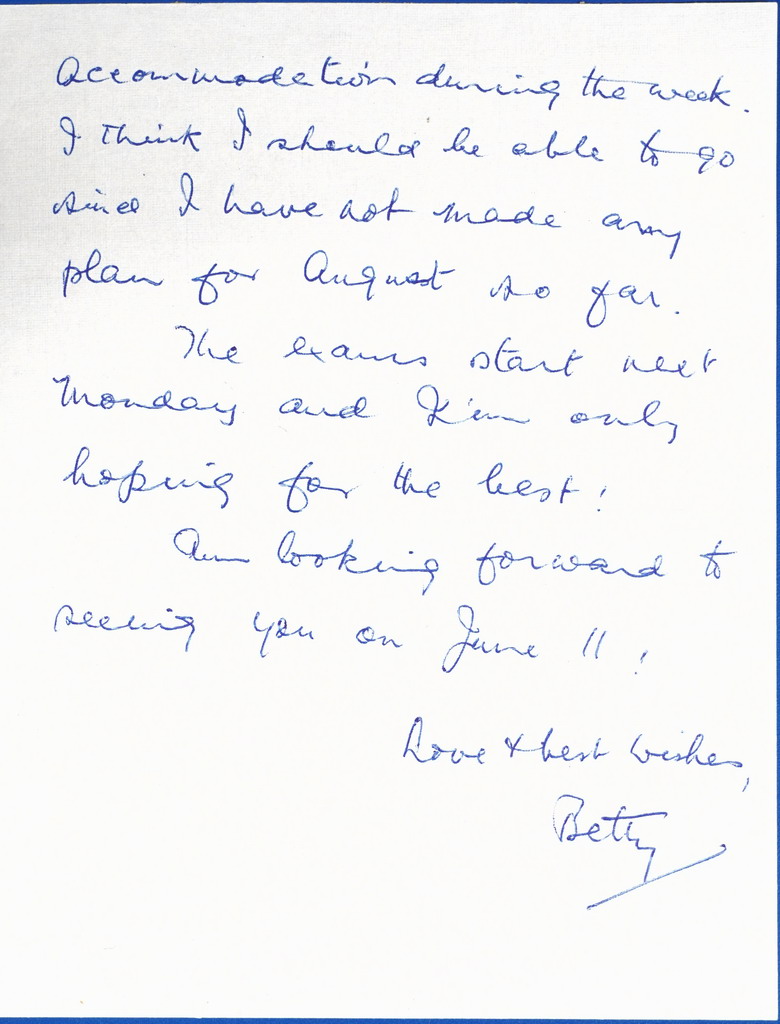 accommodation during the week.
I think I should be able to go
since I have not made any
plan for August so far.
The exams start next
Monday and I'm only
hoping for the best!
Am looking forward to
seeing you on June 11!
Love & best wishes,
Betty